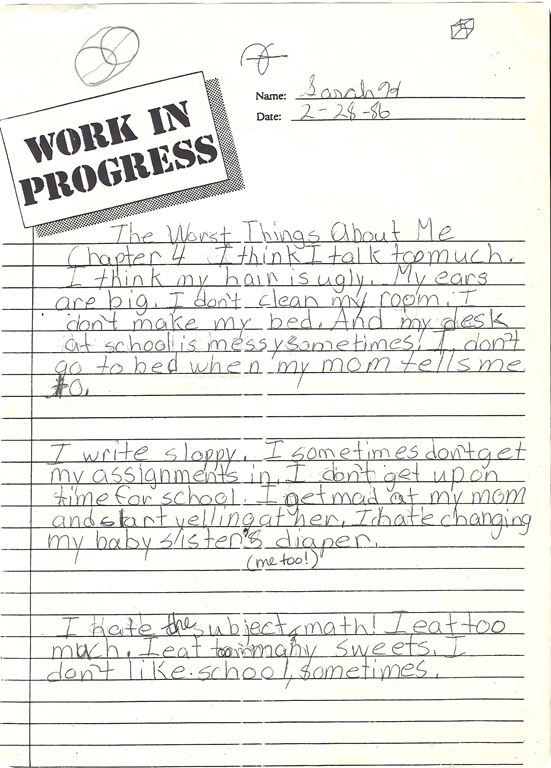 Name: Sarah
Date: 2-28-86
WORK IN
PROGRESS
The Worst Things About Me
Chapter 4 I think I talk too much.
I think my hair is ugly. My ears
are big. I don't clean my room. I
don't make my bed. And my desk
at school is messy sometimes. I don't
go to bed when my mom tells me
to.
I write sloppy. I sometimes don't get
my assignments in. I don't get up on
time for school. I get mad at my mom
and start yelling at her. I hate changing
my baby sister's diaper.
(me too!)
I hate the subject, math! I eat too
much. I eat too many sweets. I
don't like school, sometimes.